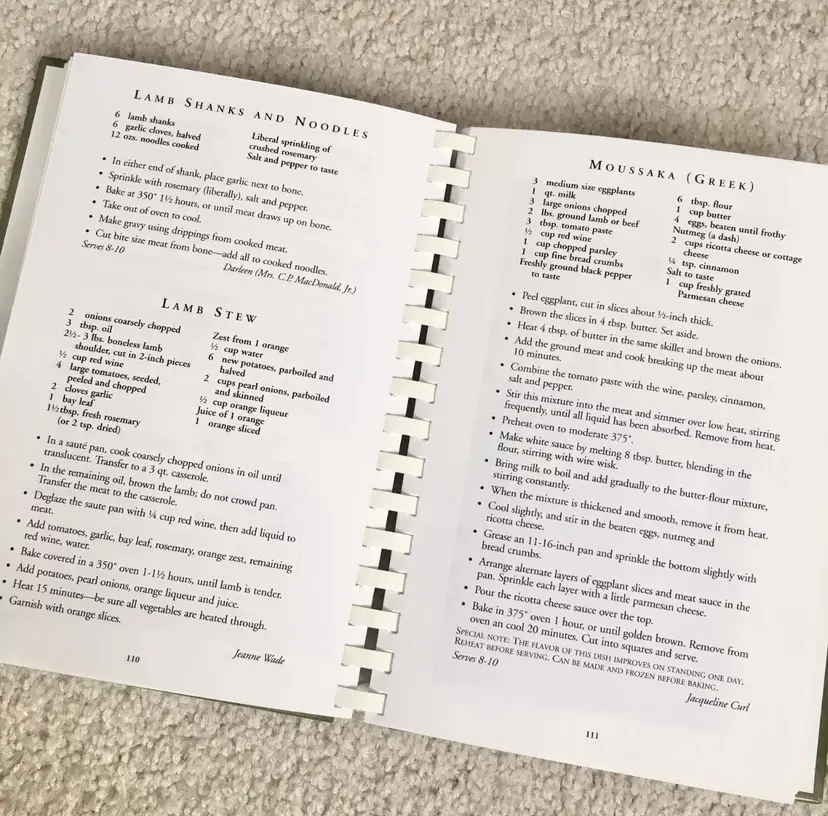 LAMB SHANKS AND NOODLES
6 lamb shanks
6 garlic cloves, halved
12 ozs. noodles cooked
Liberal sprinkling of
crushed rosemary
Salt and pepper to taste
• In either end of shank, place garlic next to bone.
• Sprinkle with rosemary (liberally), salt and pepper.
• Bake at 350° 1½ hours, or until meat draws up on bone.
• Take out of oven to cool.
• Make gravy using drippings from cooked meat.
• Cut bite size meat from bone—add all to cooked noodles.
Serves 8-10
Darleen (Mrs. C.P. MacDonald, Jr.)
LAMB STEW
2 onions coarsely chopped
3 tbsp. oil
2½- 3 lbs. boneless lamb
shoulder, cut in 2-inch pieces
½ cup red wine
4 large tomatoes, seeded,
peeled and chopped
2 cloves garlic
1 bay leaf
1½ tbsp. fresh rosemary
(or 2 tsp. dried)
Zest from 1 orange
½ cup water
6 new potatoes, parboiled and
halved
2 cups pearl onions, parboiled
and skinned
½ cup orange liqueur
Juice of 1 orange
1 orange sliced
• In a sauté pan, cook coarsely chopped onions in oil until
translucent. Transfer to a 3 qt. casserole.
• In the remaining oil, brown the lamb; do not crowd pan.
Transfer the meat to the casserole.
• Deglaze the saute pan with ¼ cup red wine, then add liquid to
meat.
• Add tomatoes, garlic, bay leaf, rosemary, orange zest, remaining
red wine, water.
• Bake covered in a 350° oven 1-1½ hours, until lamb is tender.
• Add potatoes, pearl onions, orange liqueur and juice.
• Heat 15 minutes—be sure all vegetables are heated through.
• Garnish with orange slices.
Jeanne Wade
110
MOUSSAKA (GREEK)
3 medium size eggplants
1 qt. milk
3 large onions chopped
2 lbs. ground lamb or beef
3 tbsp. tomato paste
½ cup red wine
1 cup chopped parsley
1 cup fine bread crumbs
Freshly ground black pepper
to taste
6 tbsp. flour
1 cup butter
4 eggs, beaten until frothy
Nutmeg (a dash)
2 cups ricotta cheese or cottage
cheese
¼ tsp. cinnamon
Salt to taste
1 cup freshly grated
Parmesan cheese
• Peel eggplant, cut in slices about ½-inch thick.
• Brown the slices in 4 tbsp. butter. Set aside.
• Heat 4 tbsp. of butter in the same skillet and brown the onions.
• Add the ground meat and cook breaking up the meat about
10 minutes.
• Combine the tomato paste with the wine, parsley, cinnamon,
salt and pepper.
• Stir this mixture into the meat and simmer over low heat, stirring
frequently, until all liquid has been absorbed. Remove from heat.
• Preheat oven to moderate 375°.
• Make white sauce by melting 8 tbsp. butter, blending in the
flour, stirring with wire wisk.
• Bring milk to boil and add gradually to the butter-flour mixture,
stirring constantly.
• When the mixture is thickened and smooth, remove it from heat.
• Cool slightly, and stir in the beaten eggs, nutmeg and
ricotta cheese.
• Grease an 11-16-inch pan and sprinkle the bottom slightly with
bread crumbs.
• Arrange alternate layers of eggplant slices and meat sauce in the
pan. Sprinkle each layer with a little parmesan cheese.
• Pour the ricotta cheese sauce over the top.
• Bake in 375° oven 1 hour, or until golden brown. Remove from
oven an cool 20 minutes. Cut into squares and serve.
SPECIAL NOTE: THE FLAVOR OF THIS DISH IMPROVES ON STANDING ONE DAY.
REHEAT BEFORE SERVING. CAN BE MADE AND FROZEN BEFORE BAKING.
Serves 8-10
Jacqueline Curl
111